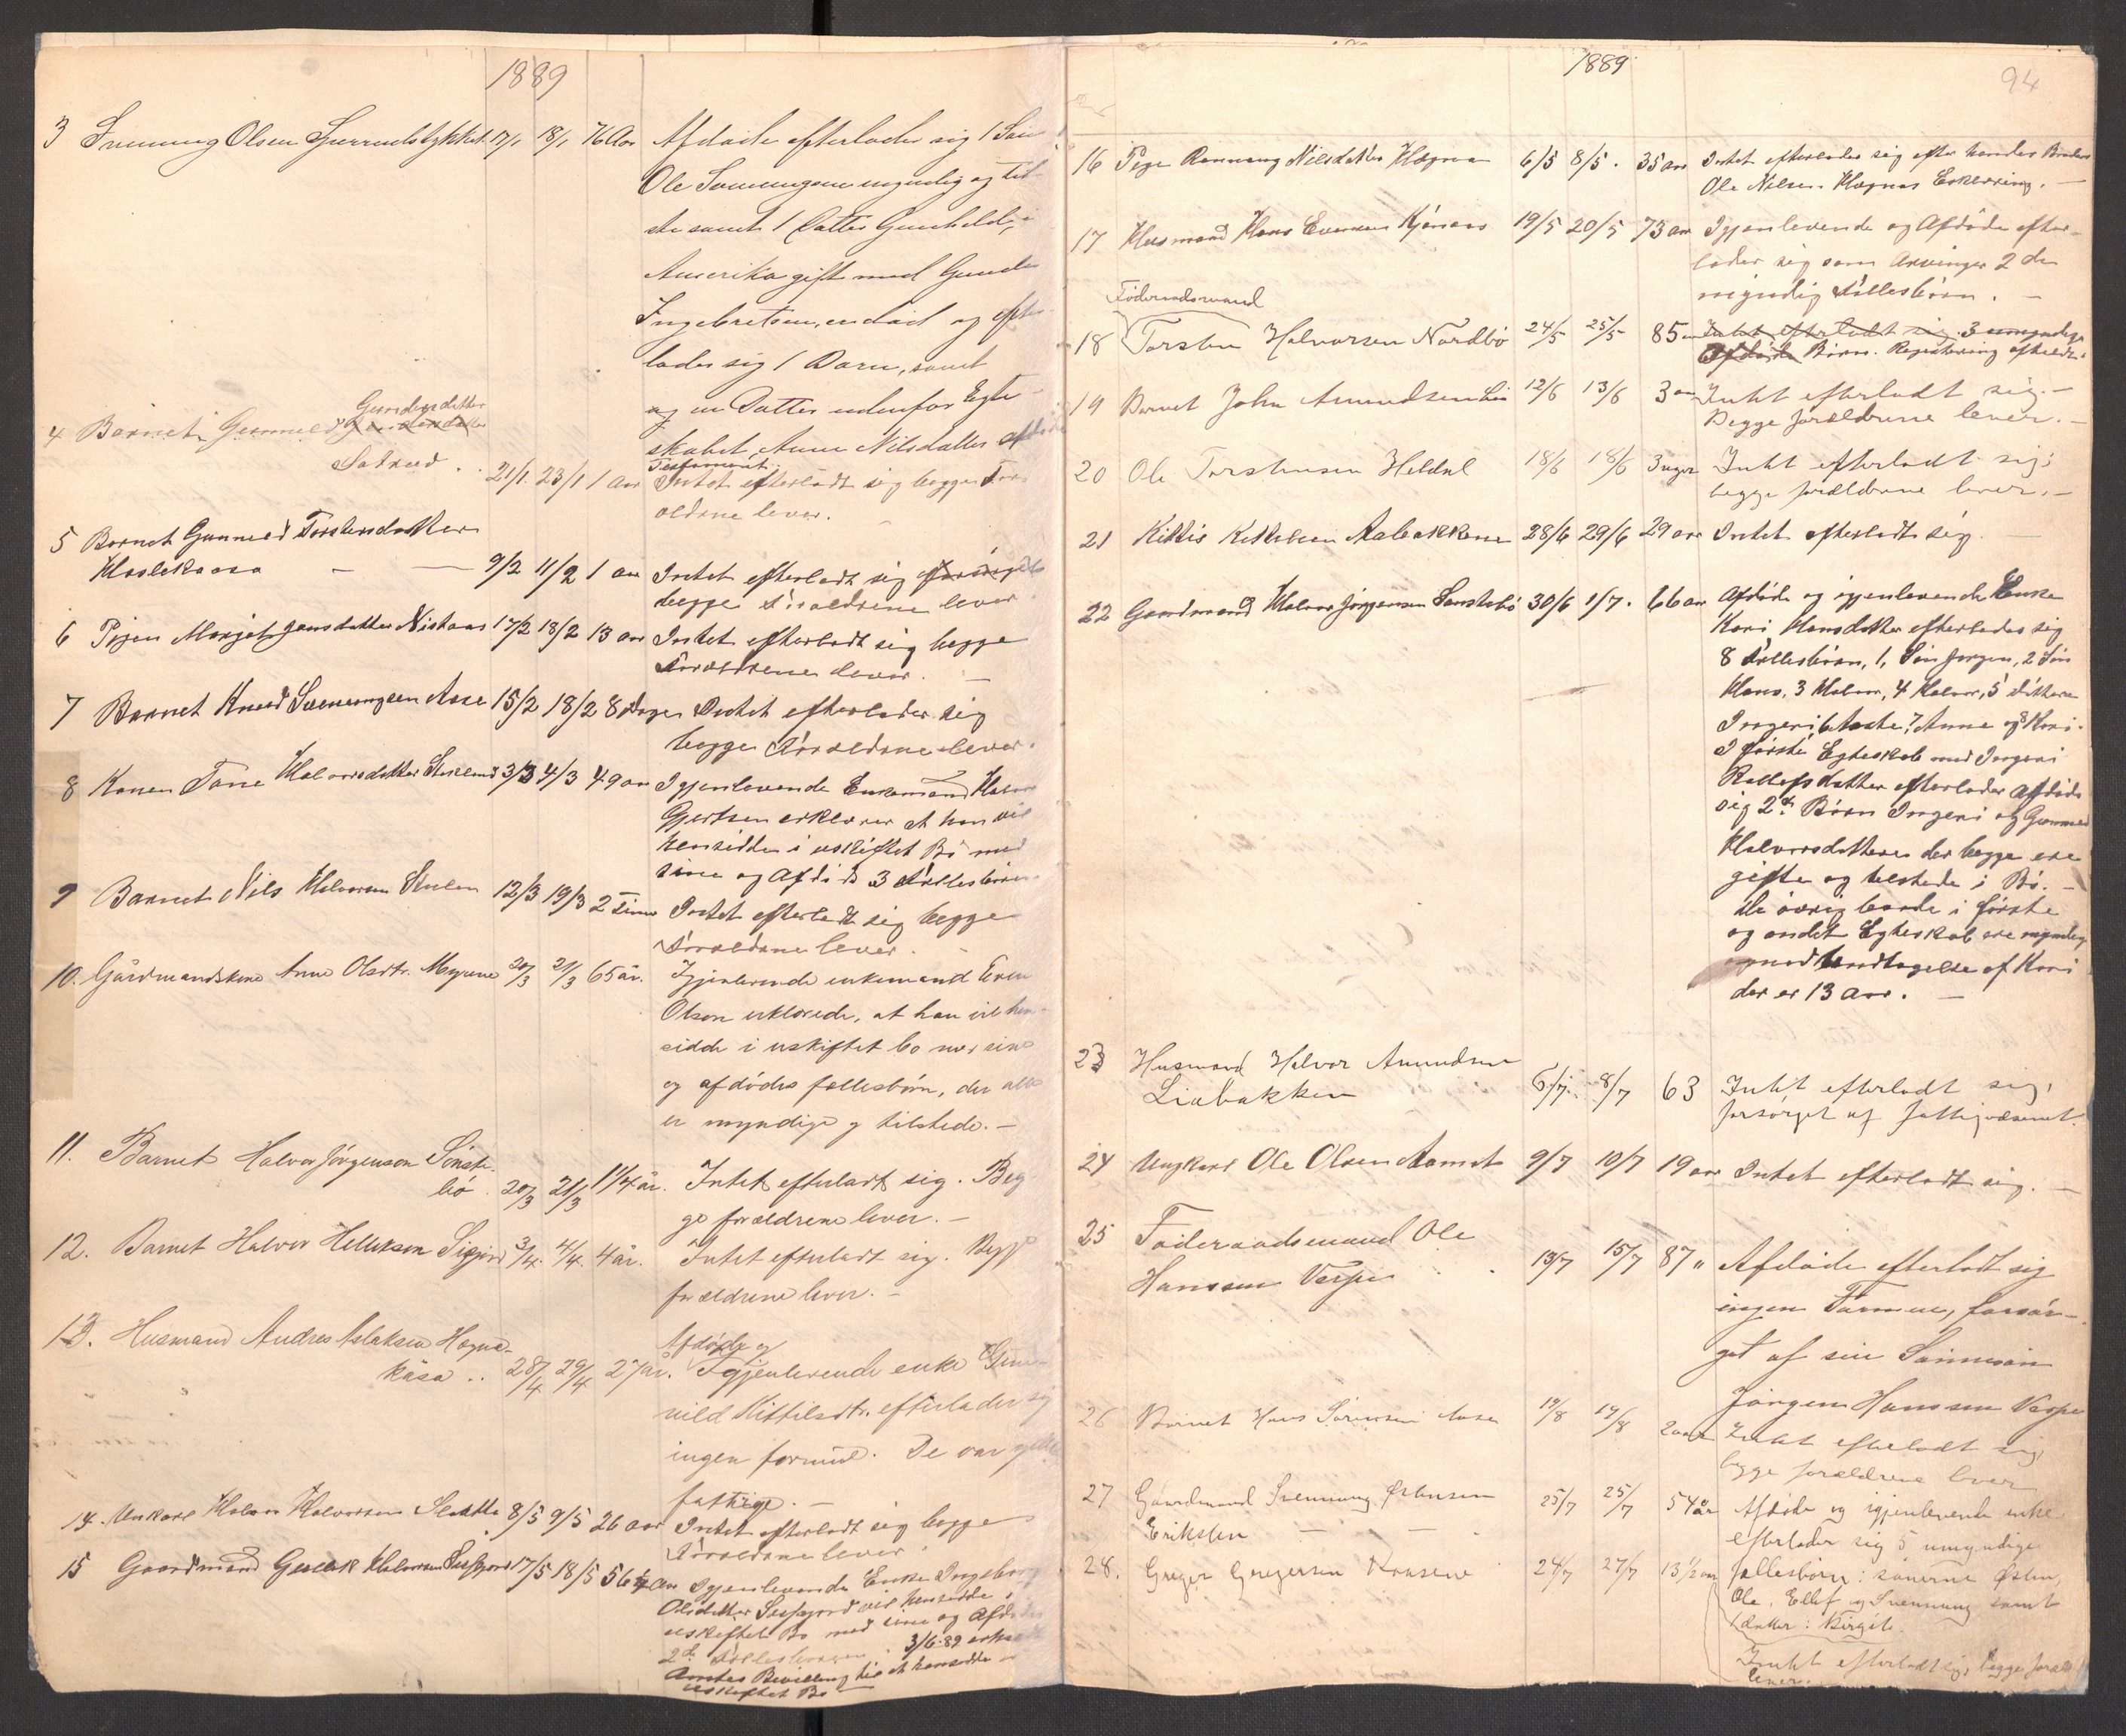 1889
3 Svenung Olsen 17/1 18/1 76 Aar Afdøde efterlader sig 1 Søn
Ole Svenungsen myndig og til-
stede samt 1 Datter Gunhild, i
Amerika gift med
Ingebretsen, er død og efter-
lader sig 1 Barn, samt
og en Datter udenfor Egte-
skabet, Anne Nilsdatter
Testament.
4 Barnet Gunnild Gundersdatter
21/1 23/1 1 Aar Intet efterladt sig begge For-
ældrene lever.
5 Barnet Gunnild Torstensdatter
Haslekaasa — — 9/2 11/2 1 aar Intet efterladt sig
begge Forældrene lever
6 Pigen Margit Jensdatter Nistaas 17/2 18/2 13 aar Intet efterladt sig begge
Forældrene lever. —
7 Barnet Knud Svenungsen Aase 15/2 18/2 8 Dage Intet efterlader sig
begge Forældrene lever.
8 Konen Tone Halvorsdatter 3/3 4/3 49 aar Igjenlevende Enkemand Halvor
Gjertsen erklærer at han vil
hensidde i uskiftet Bo med
sine og Afdøde 3 Fællesbørn
9 Barnet Nils Halvorsen 12/3 19/3 2 Timer Intet efterladt sig begge
Forældrene lever.
10. Gårdmandskone Anne Olsdtr. Myrene 20/3 21/3 65 år. Igjenlevende enkemand Even
Olsen erklærede, at han vil hen-
sidde i uskiftet bo med sine
og afdødes fællesbørn, der alle
er myndige og tilstede. —
11. Barnet Halvor Jørgensen Sønste-
bø. 20/3 21/3 1 1/4 år. Intet efterladt sig. Beg-
ge forældrene lever. —
12. Barnet Halvor Helleksen 3/4. 4/4. 4 år. Intet efterladt sig. Begge
forældrene lever. —
13. Husmand Andres Aslaksen Hegna-
kåsa .. 28/4 29/4 27 år. Afdøde og
Igjenlevende enke Gun-
nild Kittilsdtr. efterlader sig
ingen formue. De var
fattige. —
14. Unkarl Halvor Halvorsen Sletta 8/5 9/5 26 aar Intet efterladt sig begge
Forældrene lever.
15 Gaardmand Halvorsen 17/5 18/5 56 aar Igjenlevende Enke Ingeborg
Olsdatter vil hensidde i
uskiftet Bo med sine og Afdødes
2de Fællesbørn. 3/6.89
Amtets Bevilling til at hensidde i
uskiftet Bo
1889 94
16 Pige Rønnaug Nilsdatter Hegna 6/5 8/5. 35 aar Intet efterlader sig efter hendes Broder
Ole Nilsen Hegnas Erklæring. —
17 Husmand Hans Evensen 19/5 20/5 73 aar Igjenlevende og Afdøde efter-
lader sig som Arvinger 2 de
myndig Fællesbørn. —
Føderaadsmand
18 Torsten Halvorsen Nordbø 24/5 25/5 85 aar Intet efterladt sig. 3 umyndige
Afdøde Børn. Registrering afholdt.
19 Barnet John Amundsen Lia 12/6 13/6 3 aar Intet efterladt sig. —
Begge forældrene lever. —
20 Ole Torstensen Heldal 18/6 18/6 3 uger Intet efterladt sig;
begge forældrene lever. —
21 Kittil Kittilsen Aabakkene 28/6 29/6 29 aar Intet efterladt sig. —
22 Gaardmand Halvor Jørgensen Sønstebø 30/6 1/7. 66 aar Afdøde og igjenlevende Enke
Kari Hansdatter efterlader sig
8 Fællesbørn, 1, Søn Jørgen, 2 Søn
Hans, 3 Halvor, 4 Halvor, 5 Dattere
Ingeri 6 Aaste, 7 Anne og 8 Kari.
I første Egteskab med Ingeri
Rollefsdatter efterlader Afdøde
sig 2de Børn Ingeri og Gunnild
Halvorsdattere der begge ere
gifte og tilstede i Bø. —
De øvrig baade i første
og andet Egteskab ere myndig
med Undtagelse af Kari
der er 13 Aar. —
23 Husmand Halvor Amundsen
Liabakken 6/7. 8/7 63 Intet efterladt sig,
forsørget af fattigvæsenet.
24 Ungkarl Ole Olsen Aamot 9/7 10/7 19 aar Intet efterladt sig. —
25 Føderaadsmand Ole
Hanssen Verpe 13/7 15/7 87 " Afdøde efterladt sig
ingen Formue, forsør-
get af sin Sønnesøn
Jørgen Hanssen Verpe
26 Barnet Hans Aase 17/8 2 aar Intet efterladt sig,
begge forældrene lever
27 Gaardmand Svennung Østensen
Erikstein — — 25/7 25/7 54 år Afdøde og igjenlevende enke
efterlader sig 5 umyndige
fællesbørn: sønerne Østen,
Ole, Ellef og Svennung samt
datter: Birgit.
28. Greger Gregersen 24/7 27/7 13 1/2 aar
Intet efterladt sig, begge foræld.
lever.